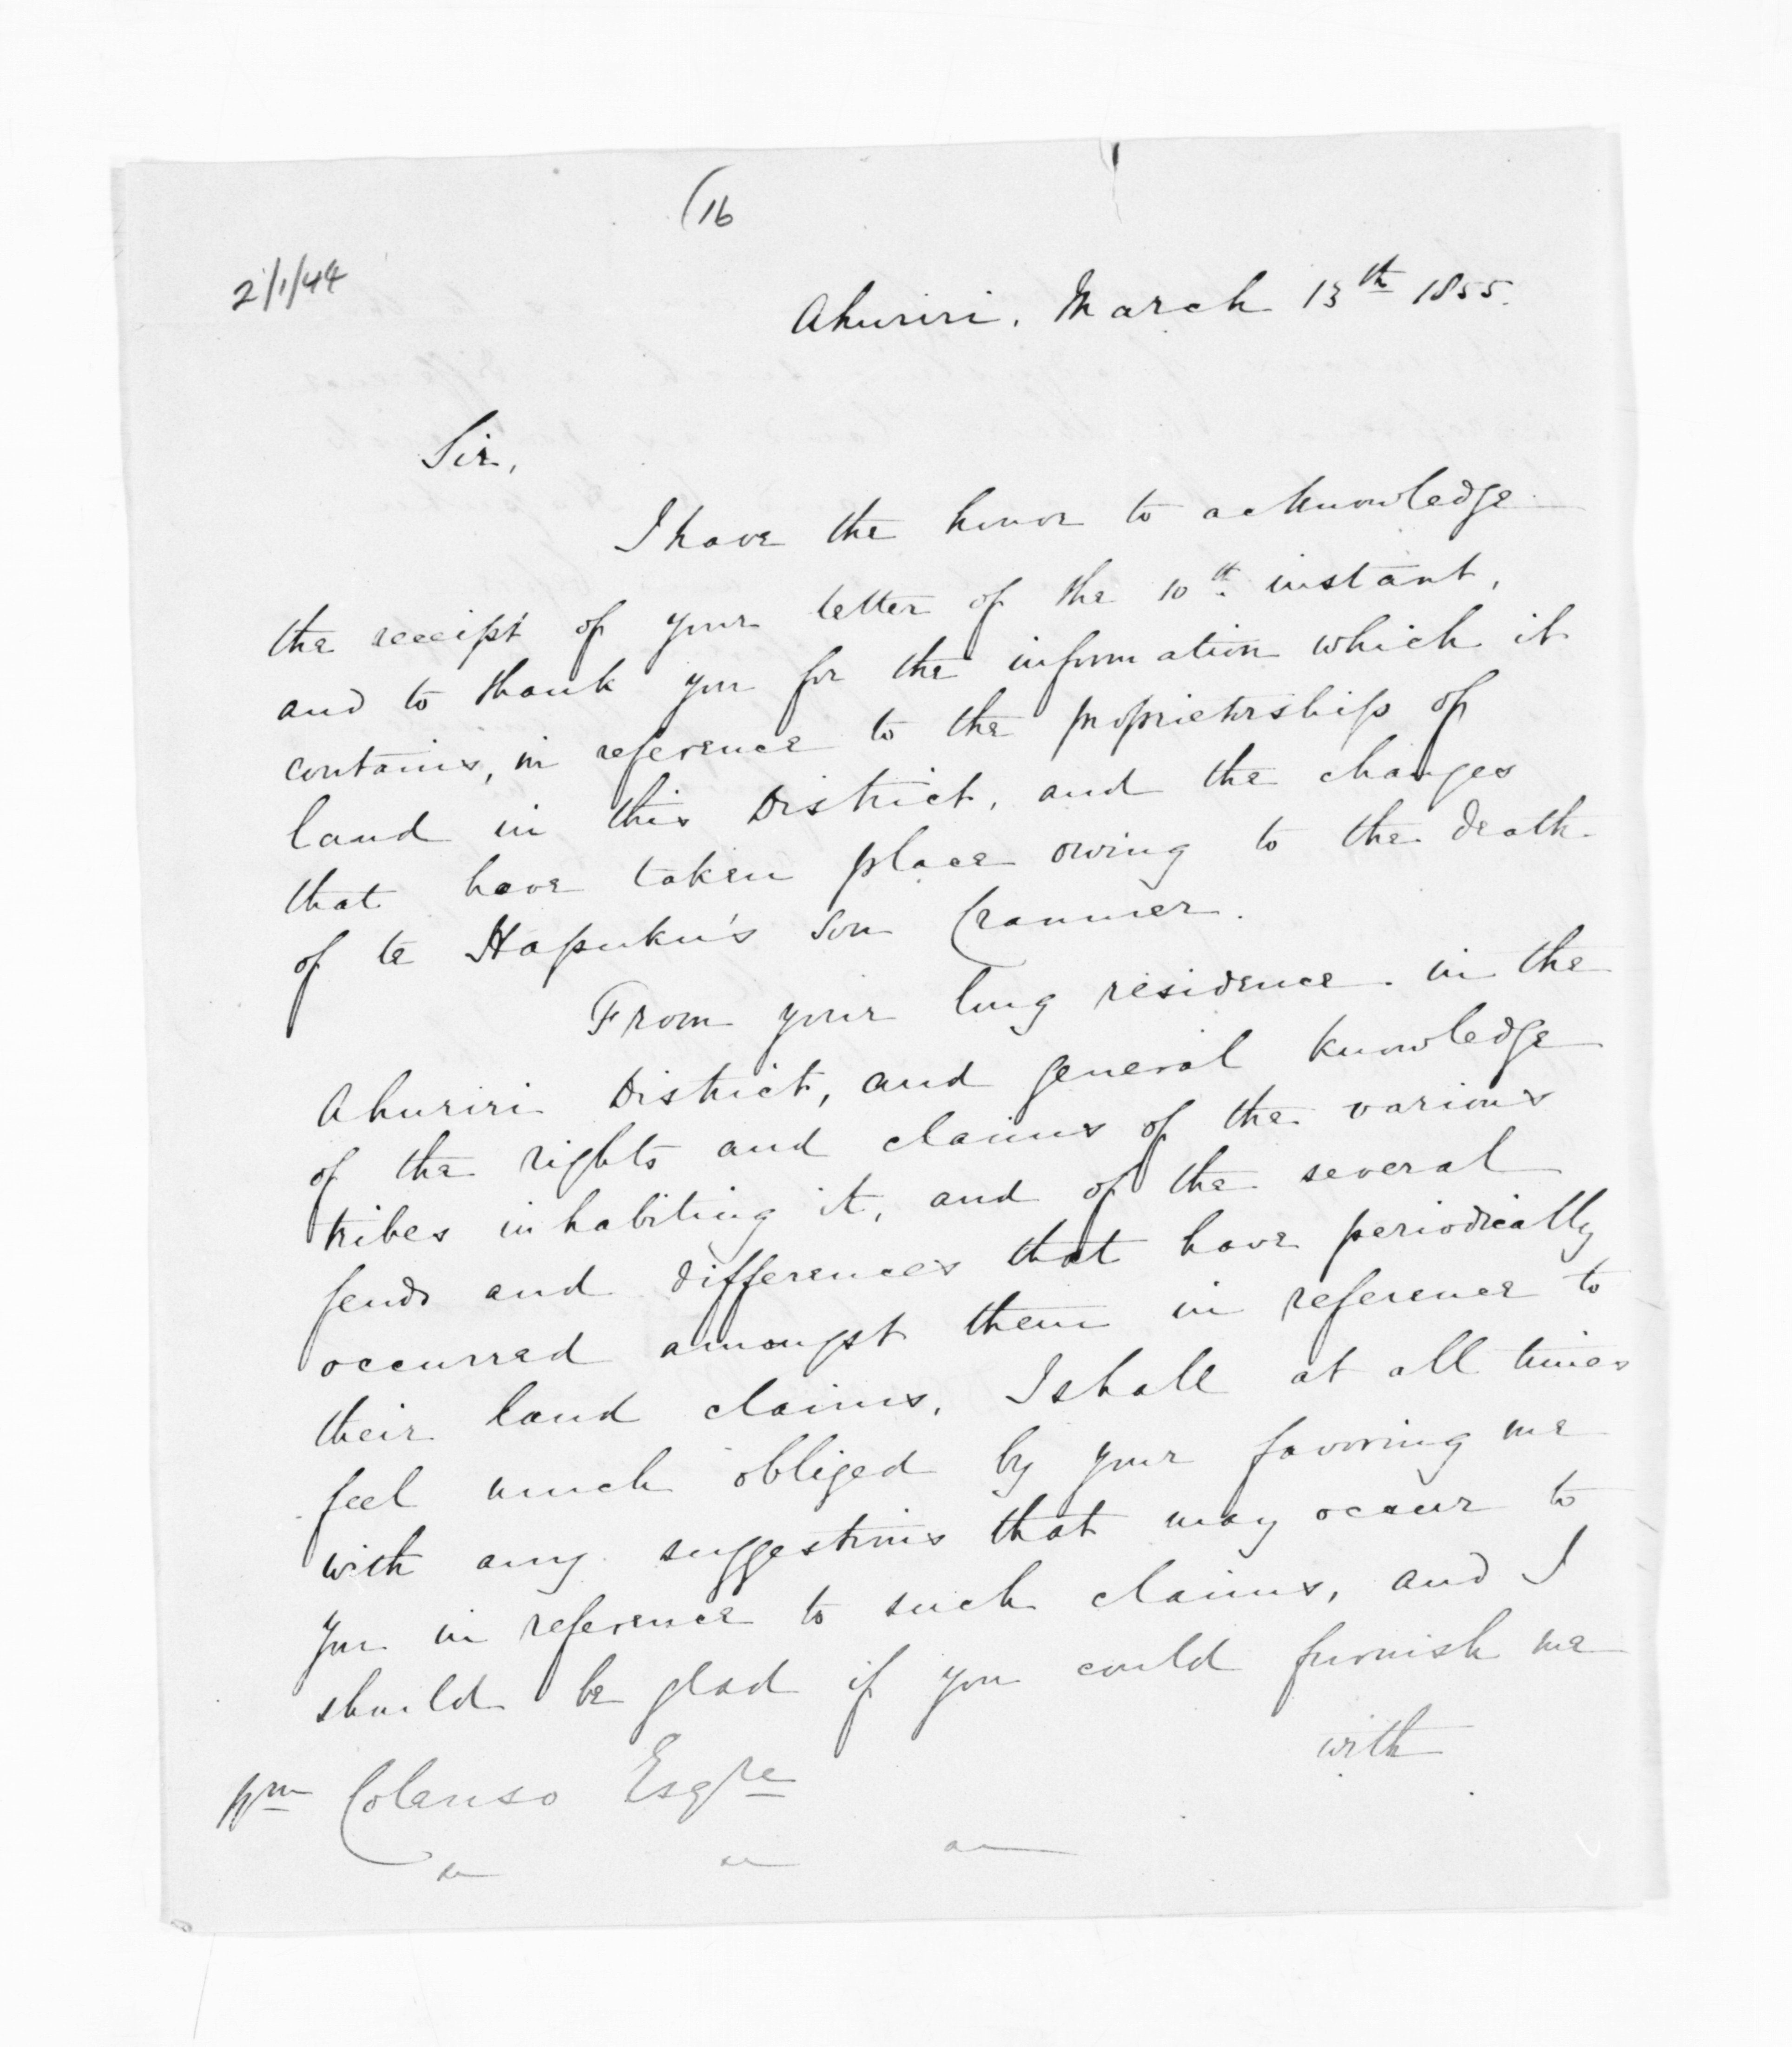 (16
2/1/44
Ahuriri. March 13th 1855.
Sir,
I have the honor to acknowledge
the receipt of your letter of the 10th instant,
and to thank you for the information which it
contains, in reference to the proprietorship of
land in this District, and the changes
that have taken place owing to the death
of te Hapuku's son Cranmer.
From your long residence in the
Ahuriri District, and general knowledge
of the rights and claims of the various
tribes inhabiting it, and of the several
feuds and differences that have periodically
occurred amongst them in reference to
their land claims, I shall at all times
feel much obliged by your favoring me
with any suggestions that may occur to
you in reference to such claims, and I
should be glad if you could furnish me
with
Wm Colenso Esqre